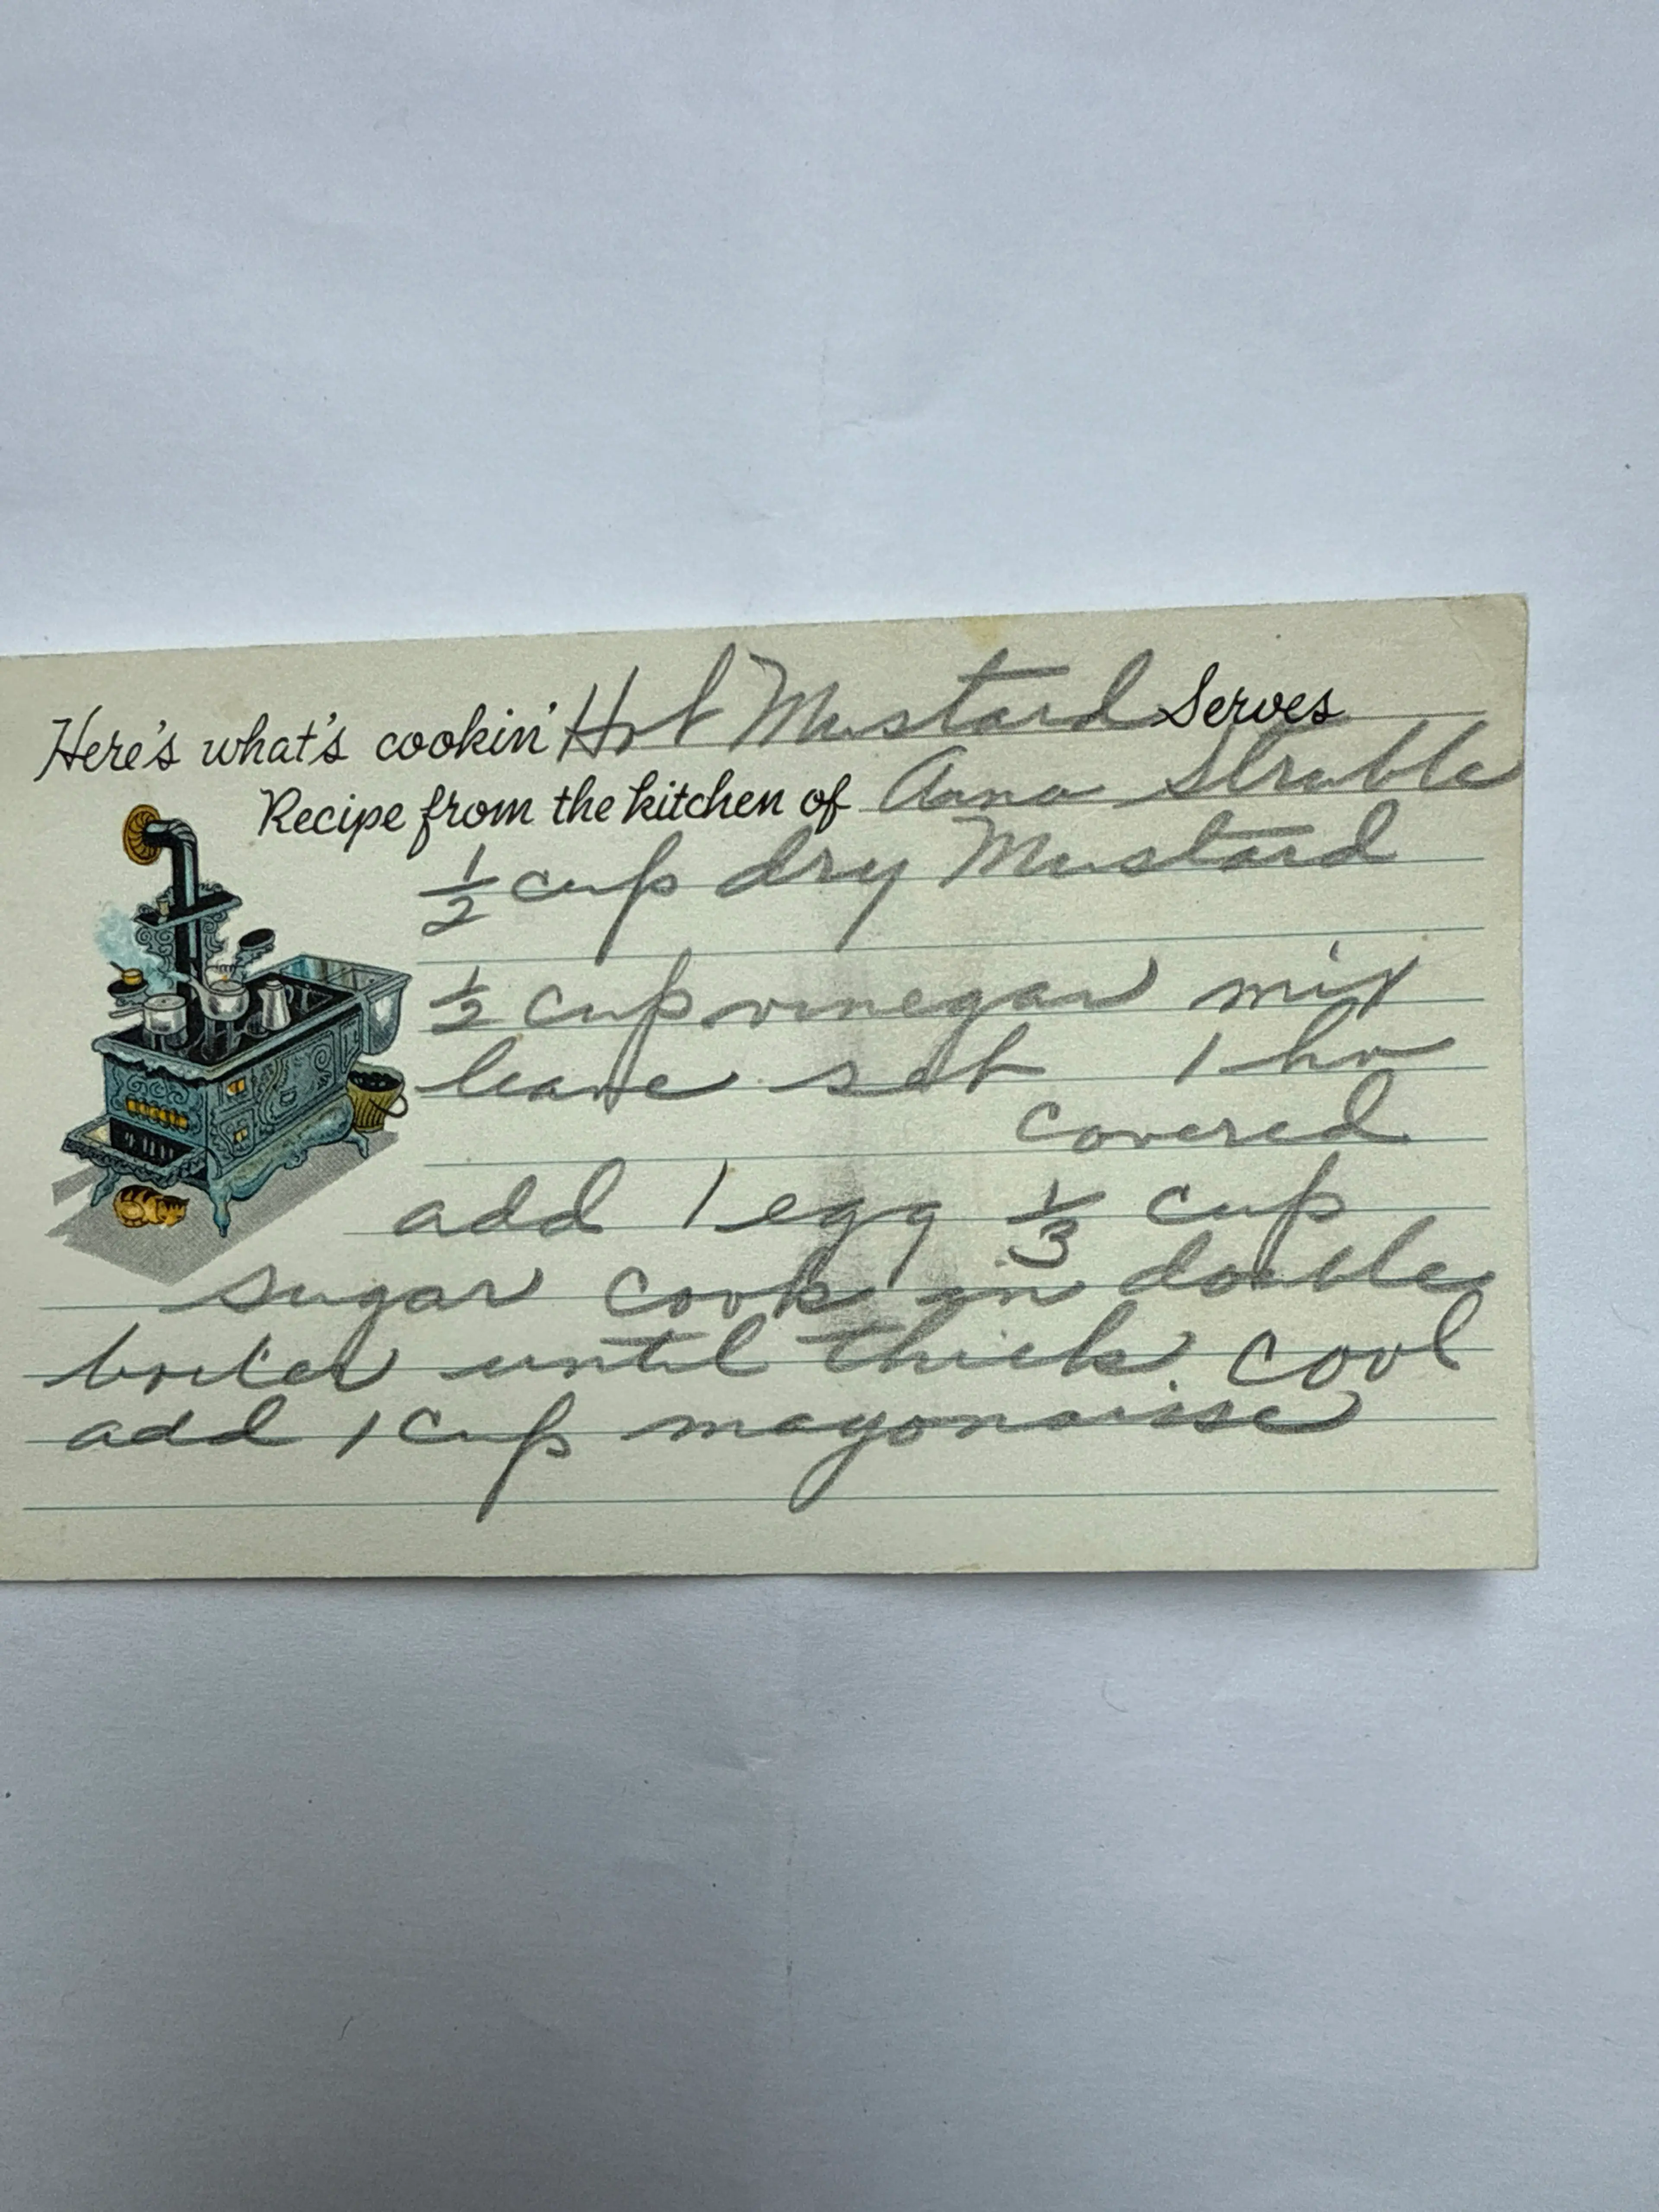 Here's what's cookin' Hot Mustard Serves
Recipe from the kitchen of Anna Struble
1/2 cup dry Mustard
1/2 cup vinegar mix
leave set 1 hr
covered
add 1 egg 1/3 cup
sugar cook in double
boiler until thick. cool
add 1 cup mayonaisse